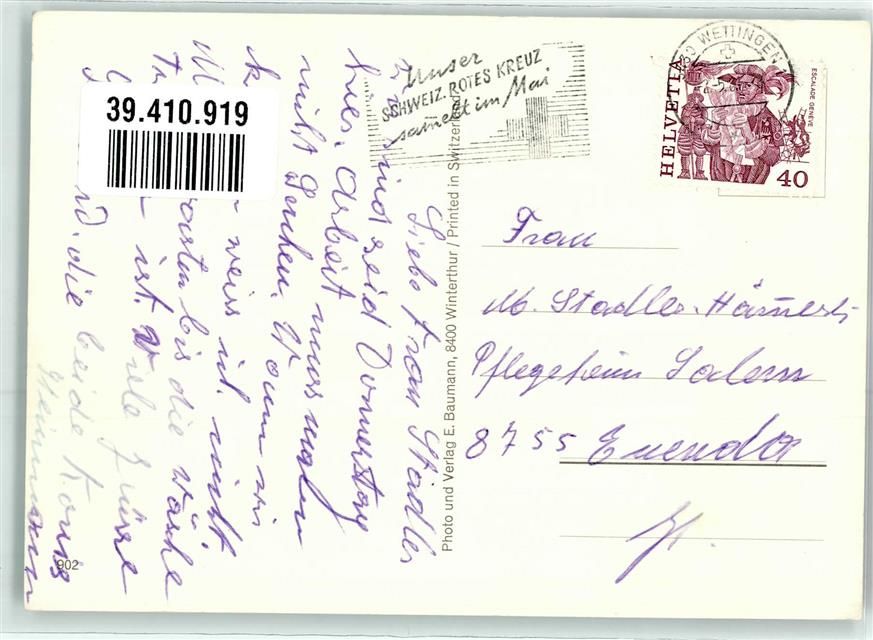 39.410.919
Unser
SCHWEIZ. ROTES KREUZ
sammelt im Mai
WETTINGEN
HELVETIA
ESCALADE GENÈVE
40
Liebe Frau Stadler
sind seid Donnerstag
hier. Arbeit muss man
nicht suchen. Wann wir
weiss ich nicht.
bis die Wäsche
ist. Viele Grüsse
die beide
Steinmann
902
Photo und Verlag E. Baumann, 8400 Winterthur / Printed in Switzerland
Frau
M. Stadler-Hämerli
Pflegeheim Salem
8755 Ennenda
Gl.